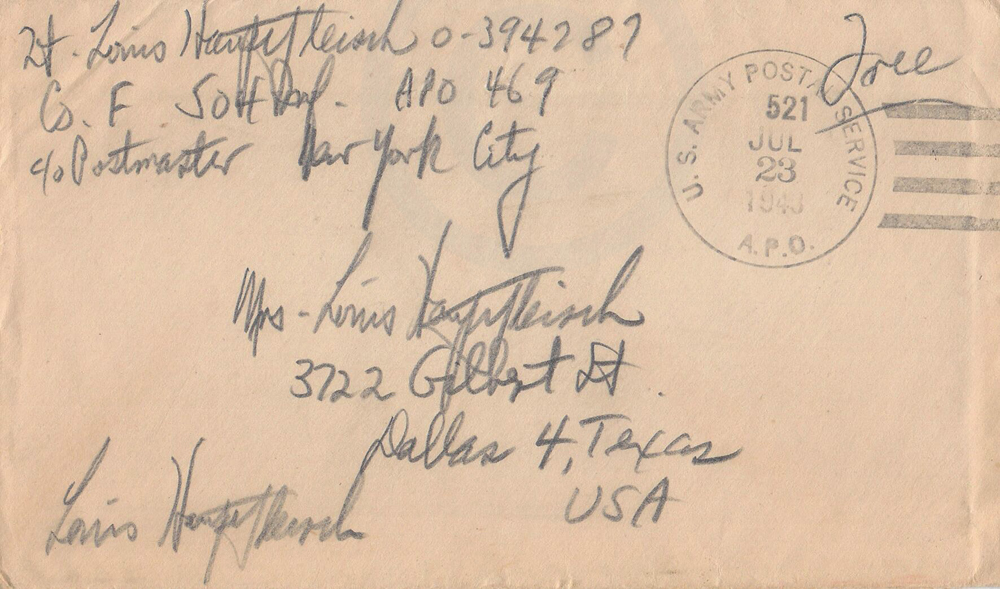 Lt. Louis Hauptfleisch O-394287
Co. F 504 Prcht Inf. APO 469
c/o Postmaster New York City
Free
U. S. ARMY POSTAL SERVICE
521
JUL
23
1943
A.P.O.
Mrs - Louis Hauptfleisch
3722 Gilbert St.
Dallas 4, Texas
USA
Louis Hauptfleisch